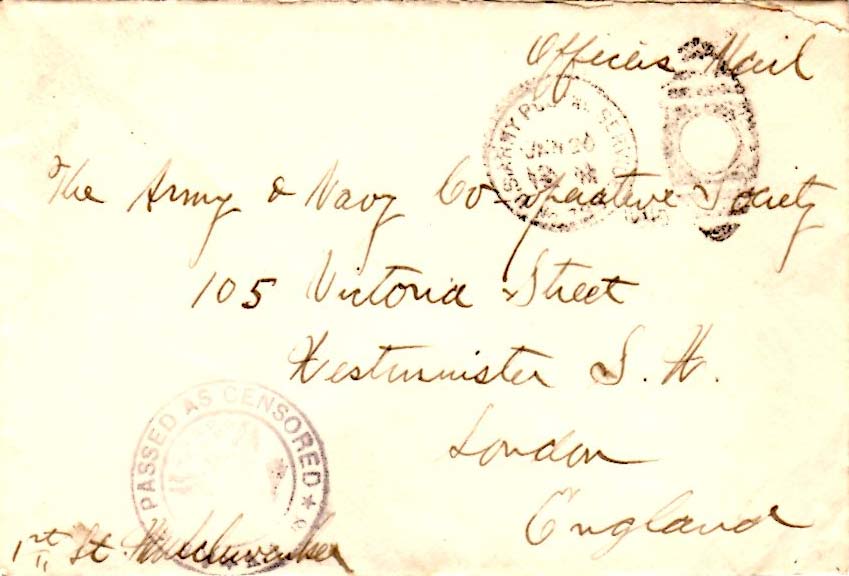 Officers Mail
U.S. ARMY POSTAL SERVICE
JAN 26
The Army & Navy Co-operative Society
105 Victoria Street
Westminster S. W.
London
England
PASSED AS CENSORED
1st Lt